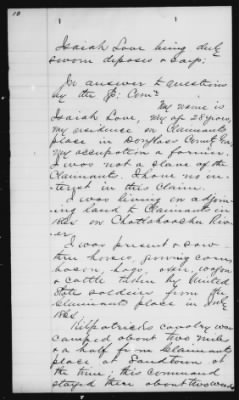 10
Isaiah Love being duly
sworn deposes & says:
In answer to questions
by the Sp: Com:
My name is
Isaiah Love, my age 28 years,
my residence on Claimants
place in Campbell County Ga,
my occupation a farmer.
I was not a slave of the
Claimants. I have no in-
terest in this Claim.
I was living on adjoin-
ing land to Claimants in
1864 on Chattahoochee Riv-
er.
I was present & saw
three horses, growing corn,
bacon, hogs, oxen, wagon
& cattle taken by United
State soldiers from the
Claimants place in July
1864.
Kilpatricks cavalry was
camped about two miles
& a half from Claimants
place at Sandtown at
the time; this command
stayed there about two weeks